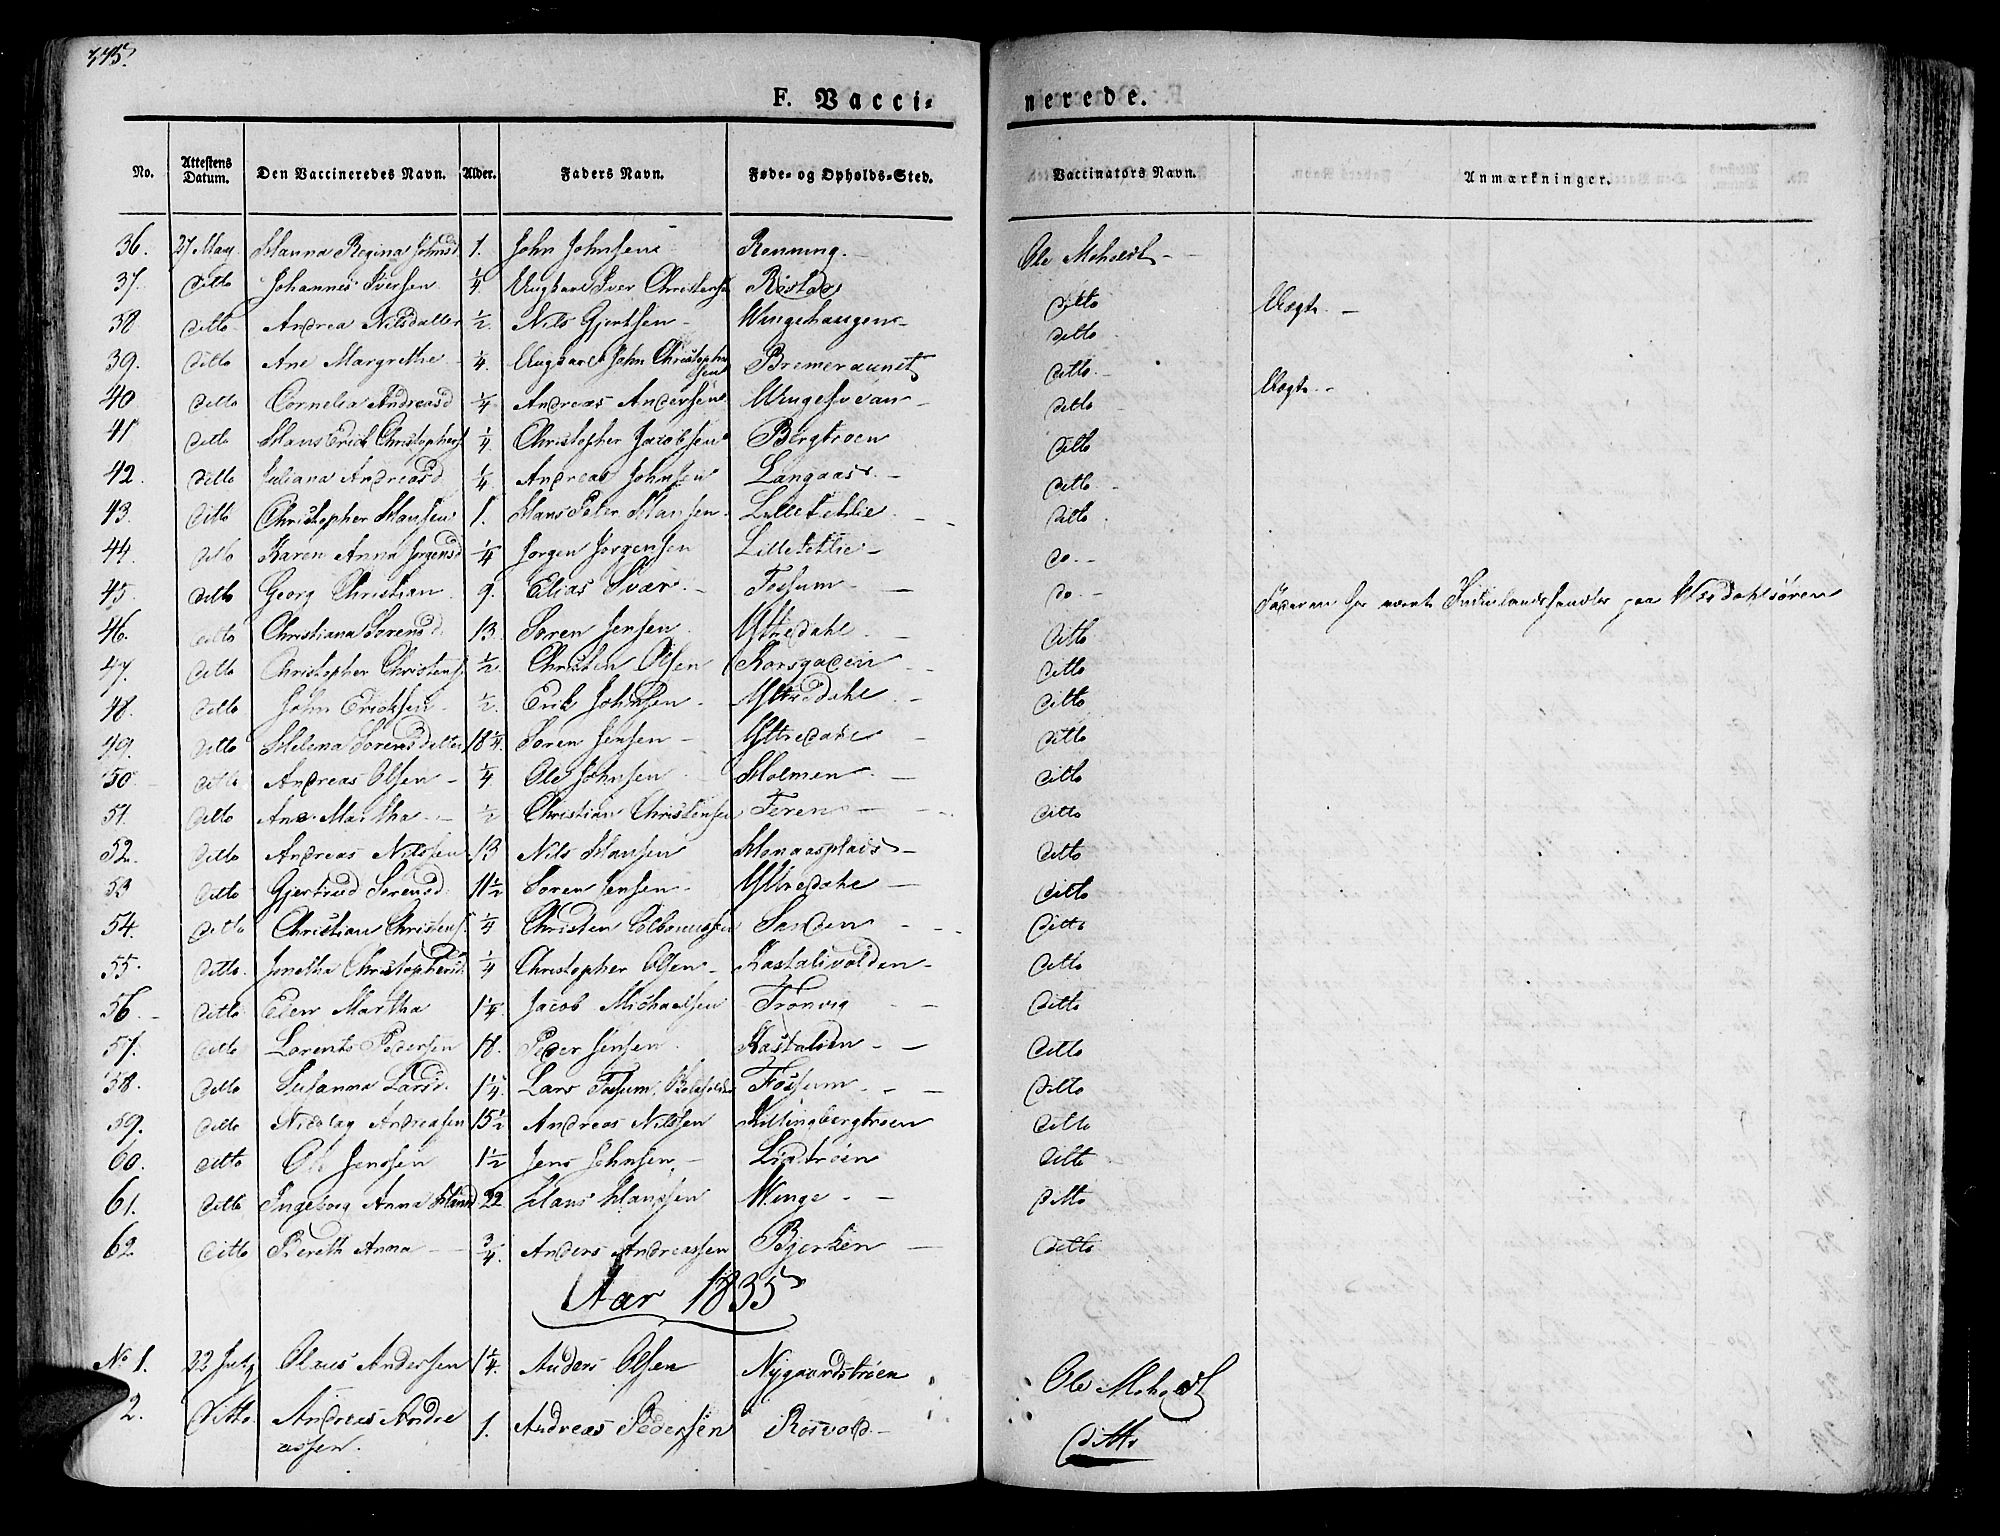 345.
F. Vacci-
nerede.
No. Attestens Datum. Den Vaccineredes Navn. Alder. Faders Navn. Føde- og Opholds-Sted. Vaccinators Navn. Anmærkninger.
36. 27 May Hanna Regina Johnsd 1. John Johnsen Rønning. Ole Moholdt
37. ditto Johannes Iversen 1/4 Ungkarl Iver Christensen Røstad ditto Uægte
38 ditto Andrea Nilsdatter 1/2 Nils Gjertsen Wingehaugen ditto
39. ditto Ane Margrethe 1/4. Ungkarl John Christophersen Bremeraunet ditto Uægte
40 ditto Cornelia Andreasd 1/4 Andreas Andersen Wingesvean ditto
41 ditto Hans Erick Christophers 1/4 Christopher Jacobsen Bergtrøen ditto
42. ditto Juliana Andreasd 1/4 Andreas Johnsen Langaas ditto
43. ditto Christopher Hansen 1. Hans Peter Hansen Lilletetlie ditto
44. ditto Karen Anna Jørgensd 1/4 Jørgen Jørgensen Lilletetlie do.
45. ditto Georg Christian 9. Elias Svær Fossum do. Faderen har været Indenlandshandler paa Værdahlsøren
46. ditto Christiana Sørensd. 13. Søren Jensen Yttredahl ditto
47. ditto Christopher Christens. 1/2. Christen Olsen Korsgaden ditto
48. ditto John Ericksen 1/2. Erik Johnsen Yttredahl ditto
49. ditto Helena Sørensdatter 18 1/4. Søren Jensen Yttredahl ditto
50. ditto Andreas Olsen 1/4 Ole Johnsen Holmen ditto
51. ditto Ane Martha 1/2 Christian Christensen Feren ditto
52. ditto Andreas Nilssen 13 Nils Hansen Monaasplads ditto
53 ditto Gjertrud Sørensd. 11 1/2 Søren Jensen Yttredahl ditto
54. ditto Christian Christens. 1/4 Christen Colbornsen Sanden ditto
55. ditto. Jonetha Christophersd 1/4 Christopher Olsen Kastalivolden ditto
56. ditto Elen Martha 1 1/4. Jacob Michaelsen Trønvig ditto
57. ditto Lorents Pedersen 18. Peder Jensen Kastalien ditto
58. ditto Susanna Larsd. 1 1/4. Lars Fossum, Fossum ditto
59. ditto Nicolay Andreasen 15 1/2 Andreas Nilssen Killingbergtrøen ditto
60. ditto Ole Jenssen 1 1/2 Jens Johnsen Lidtrøen ditto
61. ditto Ingeborg Anna Hansd 22 Hans Hanssen Winge ditto
62. ditto Bereth Anna 3/4. Anders Andreassen Bjørken ditto
Aar 1835
No 1. 22 July Olaus Andersen 1 1/4. Anders Olsen Nygaardstrøen Ole Moholdt
2. Ditto. Andreas Andreassen. 1. Andreas Pedersen Rosvold ditto